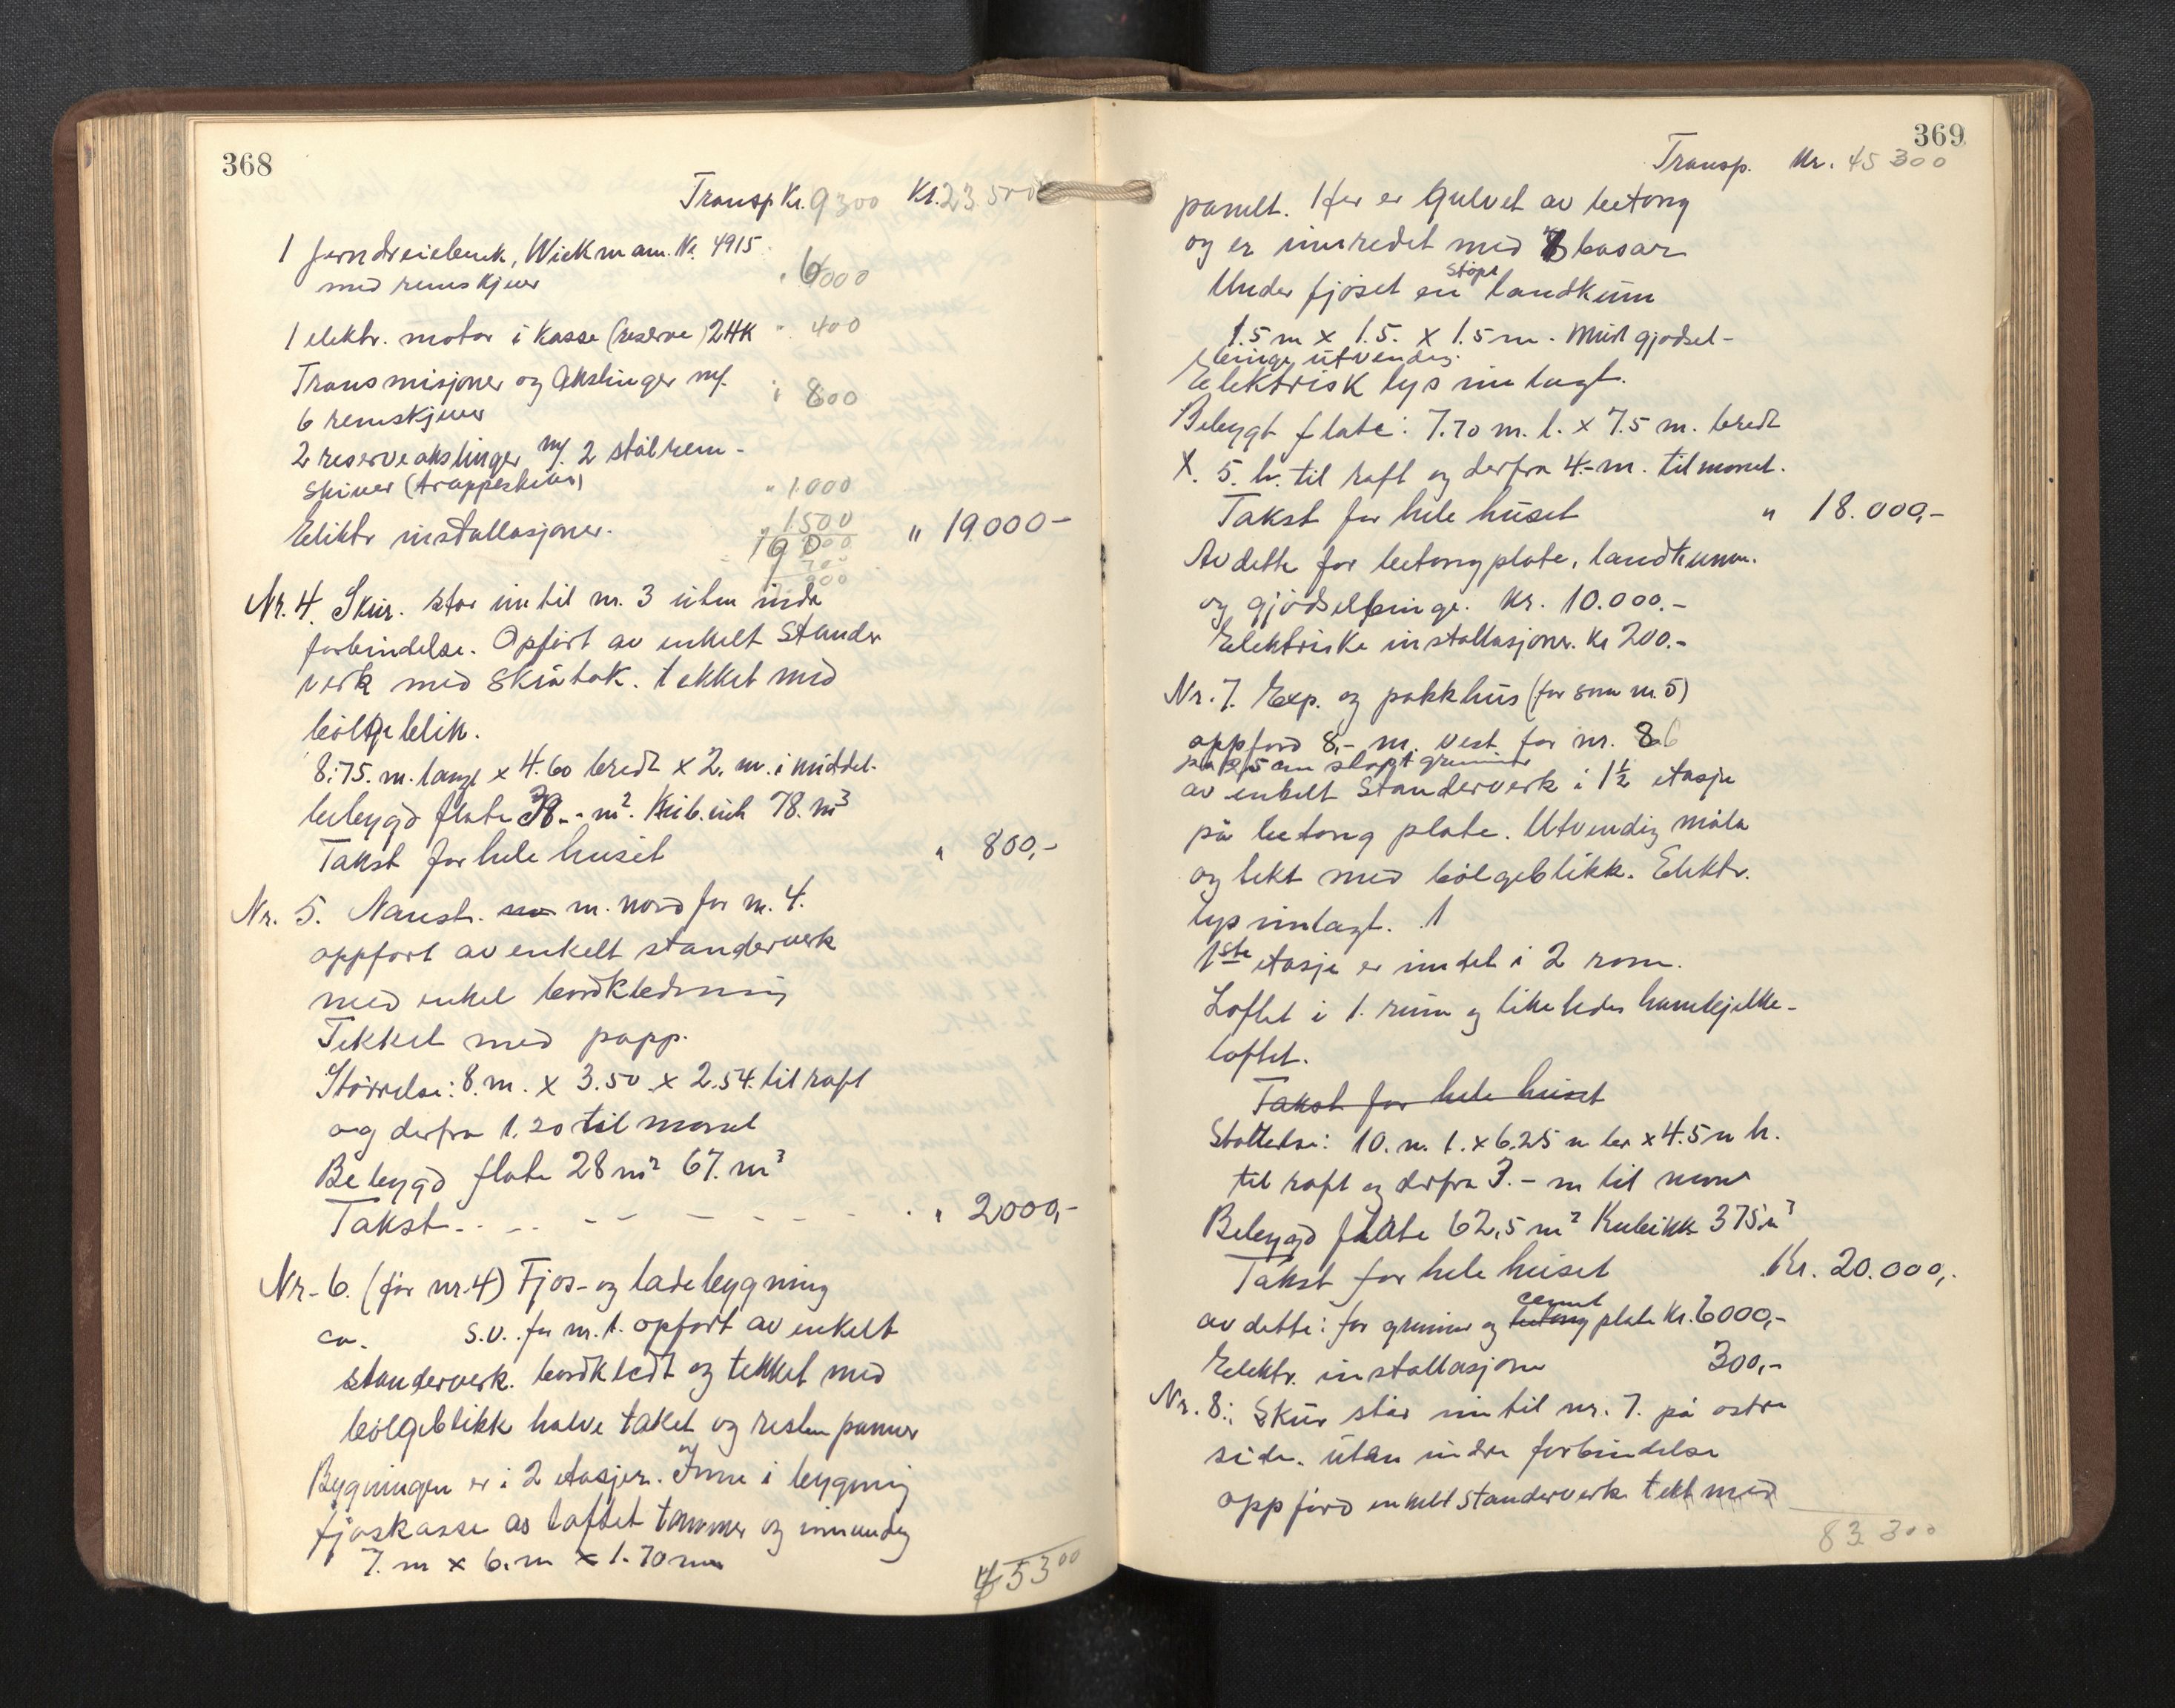 368
Transp Kr. 9300 Kr. 23 500
1 jerndreiebenk, Wickmann. No. 4915
med remskjiver " 6000
1 elektr. motor i kasse (reserve) 2HK " 400
Transmisjoner og Akslinger m/.
6 remskjiver " 800
2 reserveakslinger m/. 2 stålrem-
skiver (trappeskiver) " 1.000
Elektr installasjoner. " 1500 " 19.000-
19000
700
Nr. 4. Skur. står inntil nr. 3 uten indr
forbindelse. Opført av enkelt stander
verk med skråtak. tekket med
bølgeblik.
8.75. m. langt x 4.60 bredt x 2. m. i middel.
bebygd flate 39.- m². Kub. inh 78. m³
Takst for hele huset " 800,-
Nr. 5. Naust. m. nord for nr. 4.
oppført av enkelt standerverk
med enkel bordkledning
Tekket med papp.
Størrelse: 8. m. x 3.50 x 2.54. til raft
og derfra 1.20 til mønet
Bebygd flate 28 m² 67. m³
Takst - - - - - - - - " 2000,-
Nr. 6. (før nr. 4) Fjøs- og ladebygning
ca. s.v. for nr. 1. opført av enkelt
standerverk. bordkledt og tekket med
bølgeblikk halve taket og resten panner
Bygningen er i 2 etasjer. Inne i bygning
fjøskasse as laftet tømmer og innvendig
7. m x 6. m x 1.70 m
45300
369
Transp. Kr. 45 300
panelt. Her er gulvet av betong
og er innredet med 8 basar
Under fjøset en støpt landkum
1.5 m x 1.5. x 1.5 m. Murt gjødsel-
binge utvendig.
Elektrisk lys innlagt.
Bebygt flate: 7.70 m. l. x 7.5 m. bredt
x. 5. h. til raft og derfra 4.- m. til mønet.
Takst for hele huset " 18.000,-
Av dette for betongplate, landkumm.
og gjødselbinge. Kr. 10.000.-
Elektriske installasjoner. Kr 200.-
Nr. 7. Exp. og pakkhus (før som nr. 5)
oppførd 8,- m. vest for nr. 6
på 25 cm støpt grunnmur
av enkelt standerverk i 1½ etasje
på betong plate. Utvendig måla
og tekt med bølgeblikk. Elektr.
lys innlagt. 1
1ste etasje er inndelt i 2 rom.
Loftet i 1. rum og likeledes hanebjelke-
loftet.
Takst for hele huset
Støttelse: 10. m. l. x 6.25 m br x 4.5 m h.
til raft og derfra 3.- m til møne
Bebygd flate 62,5 m² Kubikk 375 m³
Takst for hele huset Kr. 20.000,-
av dette: for grunnm og betong cement plate Kr. 6000,-
Elektr. installasjoner 300,-
Nr. 8.: Skur står inntil nr. 7. på østre
side. utan indre forbindelse
oppførd enkelt standerverk tekt med
83 300